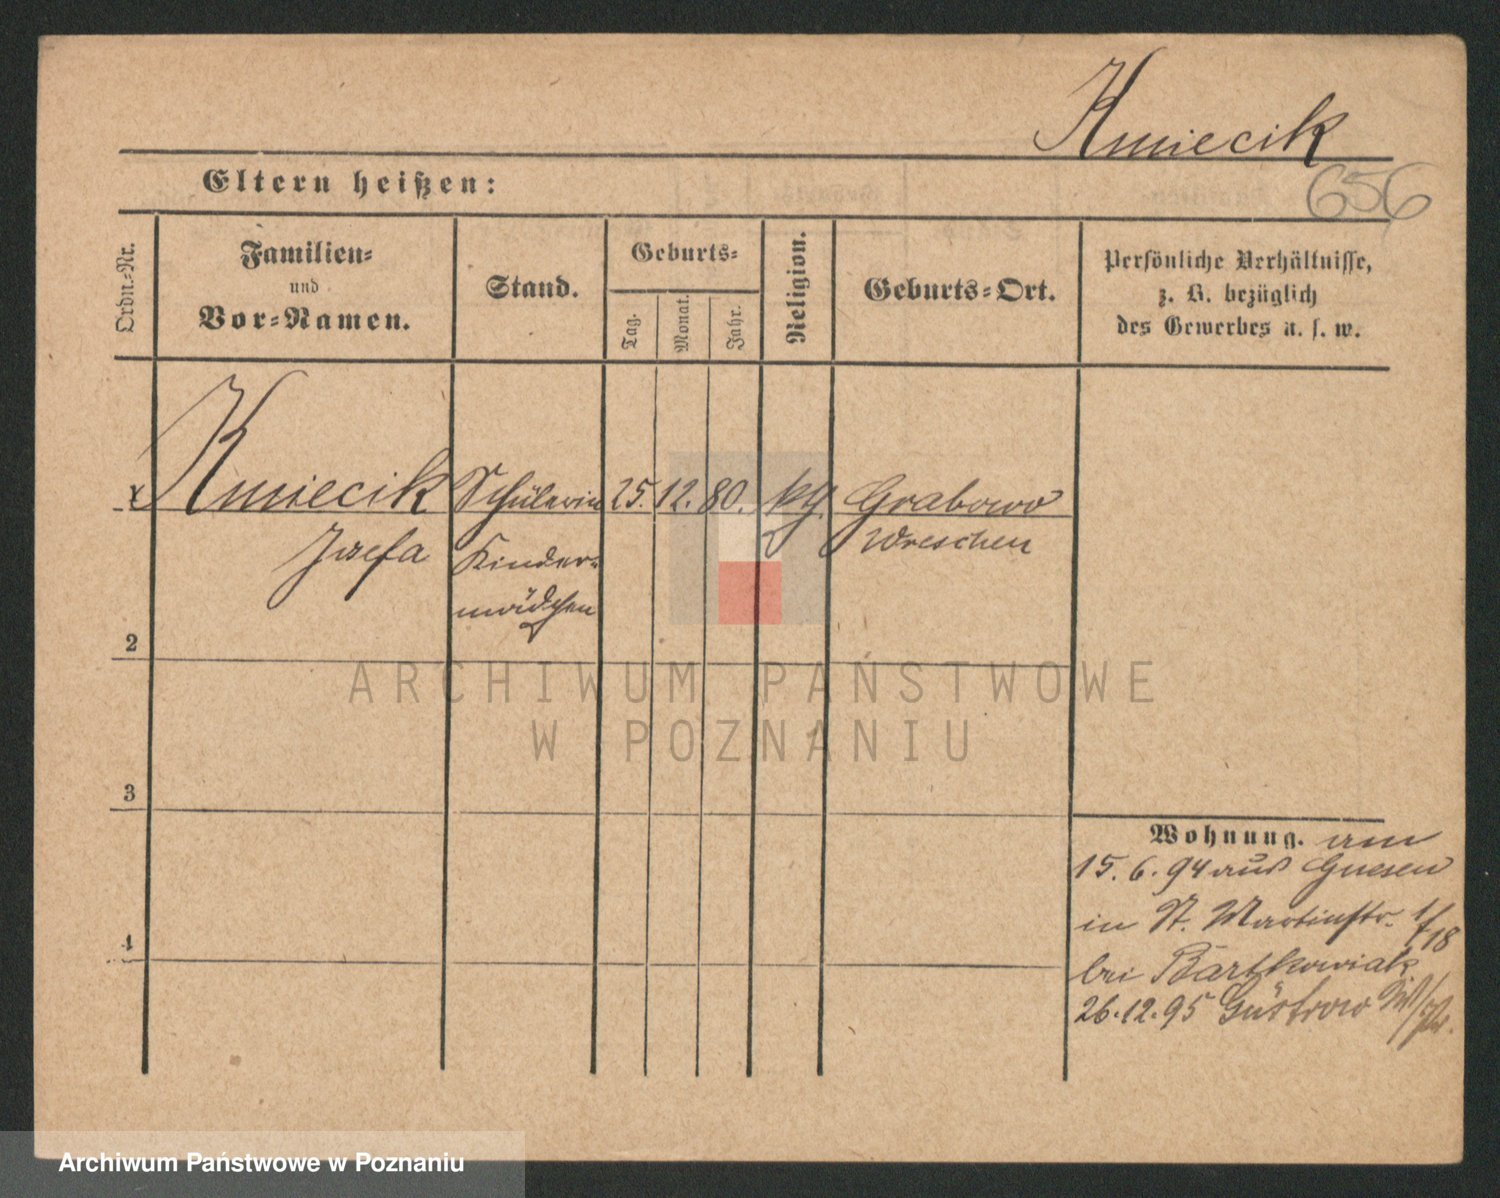 Kmiecik
656
Eltern heißen:
Ordn.-Nr.
Familien-
und
Vor-Namen.
Stand.
Geburts-
Tag.
Monat.
Jahr.
Religion.
Geburts-Ort.
Persönliche Verhältnisse,
z. B. bezüglich
des Gewerbes u. s. w.
1 Kmiecik Schülerin 25. 12. 80. kth. Grabowo
Josefa Kinder- Wreschen
mädchen
2
ARCHIWUM PAŃSTWOWE
W POZNANIU
3
Wohnung. am
15. 6. 94 aus Gnesen
in St. Martinstr. 1/18
4
bei Bartkowiak
26.12.95 Güstrow
Archiwum Państwowe w Poznaniu